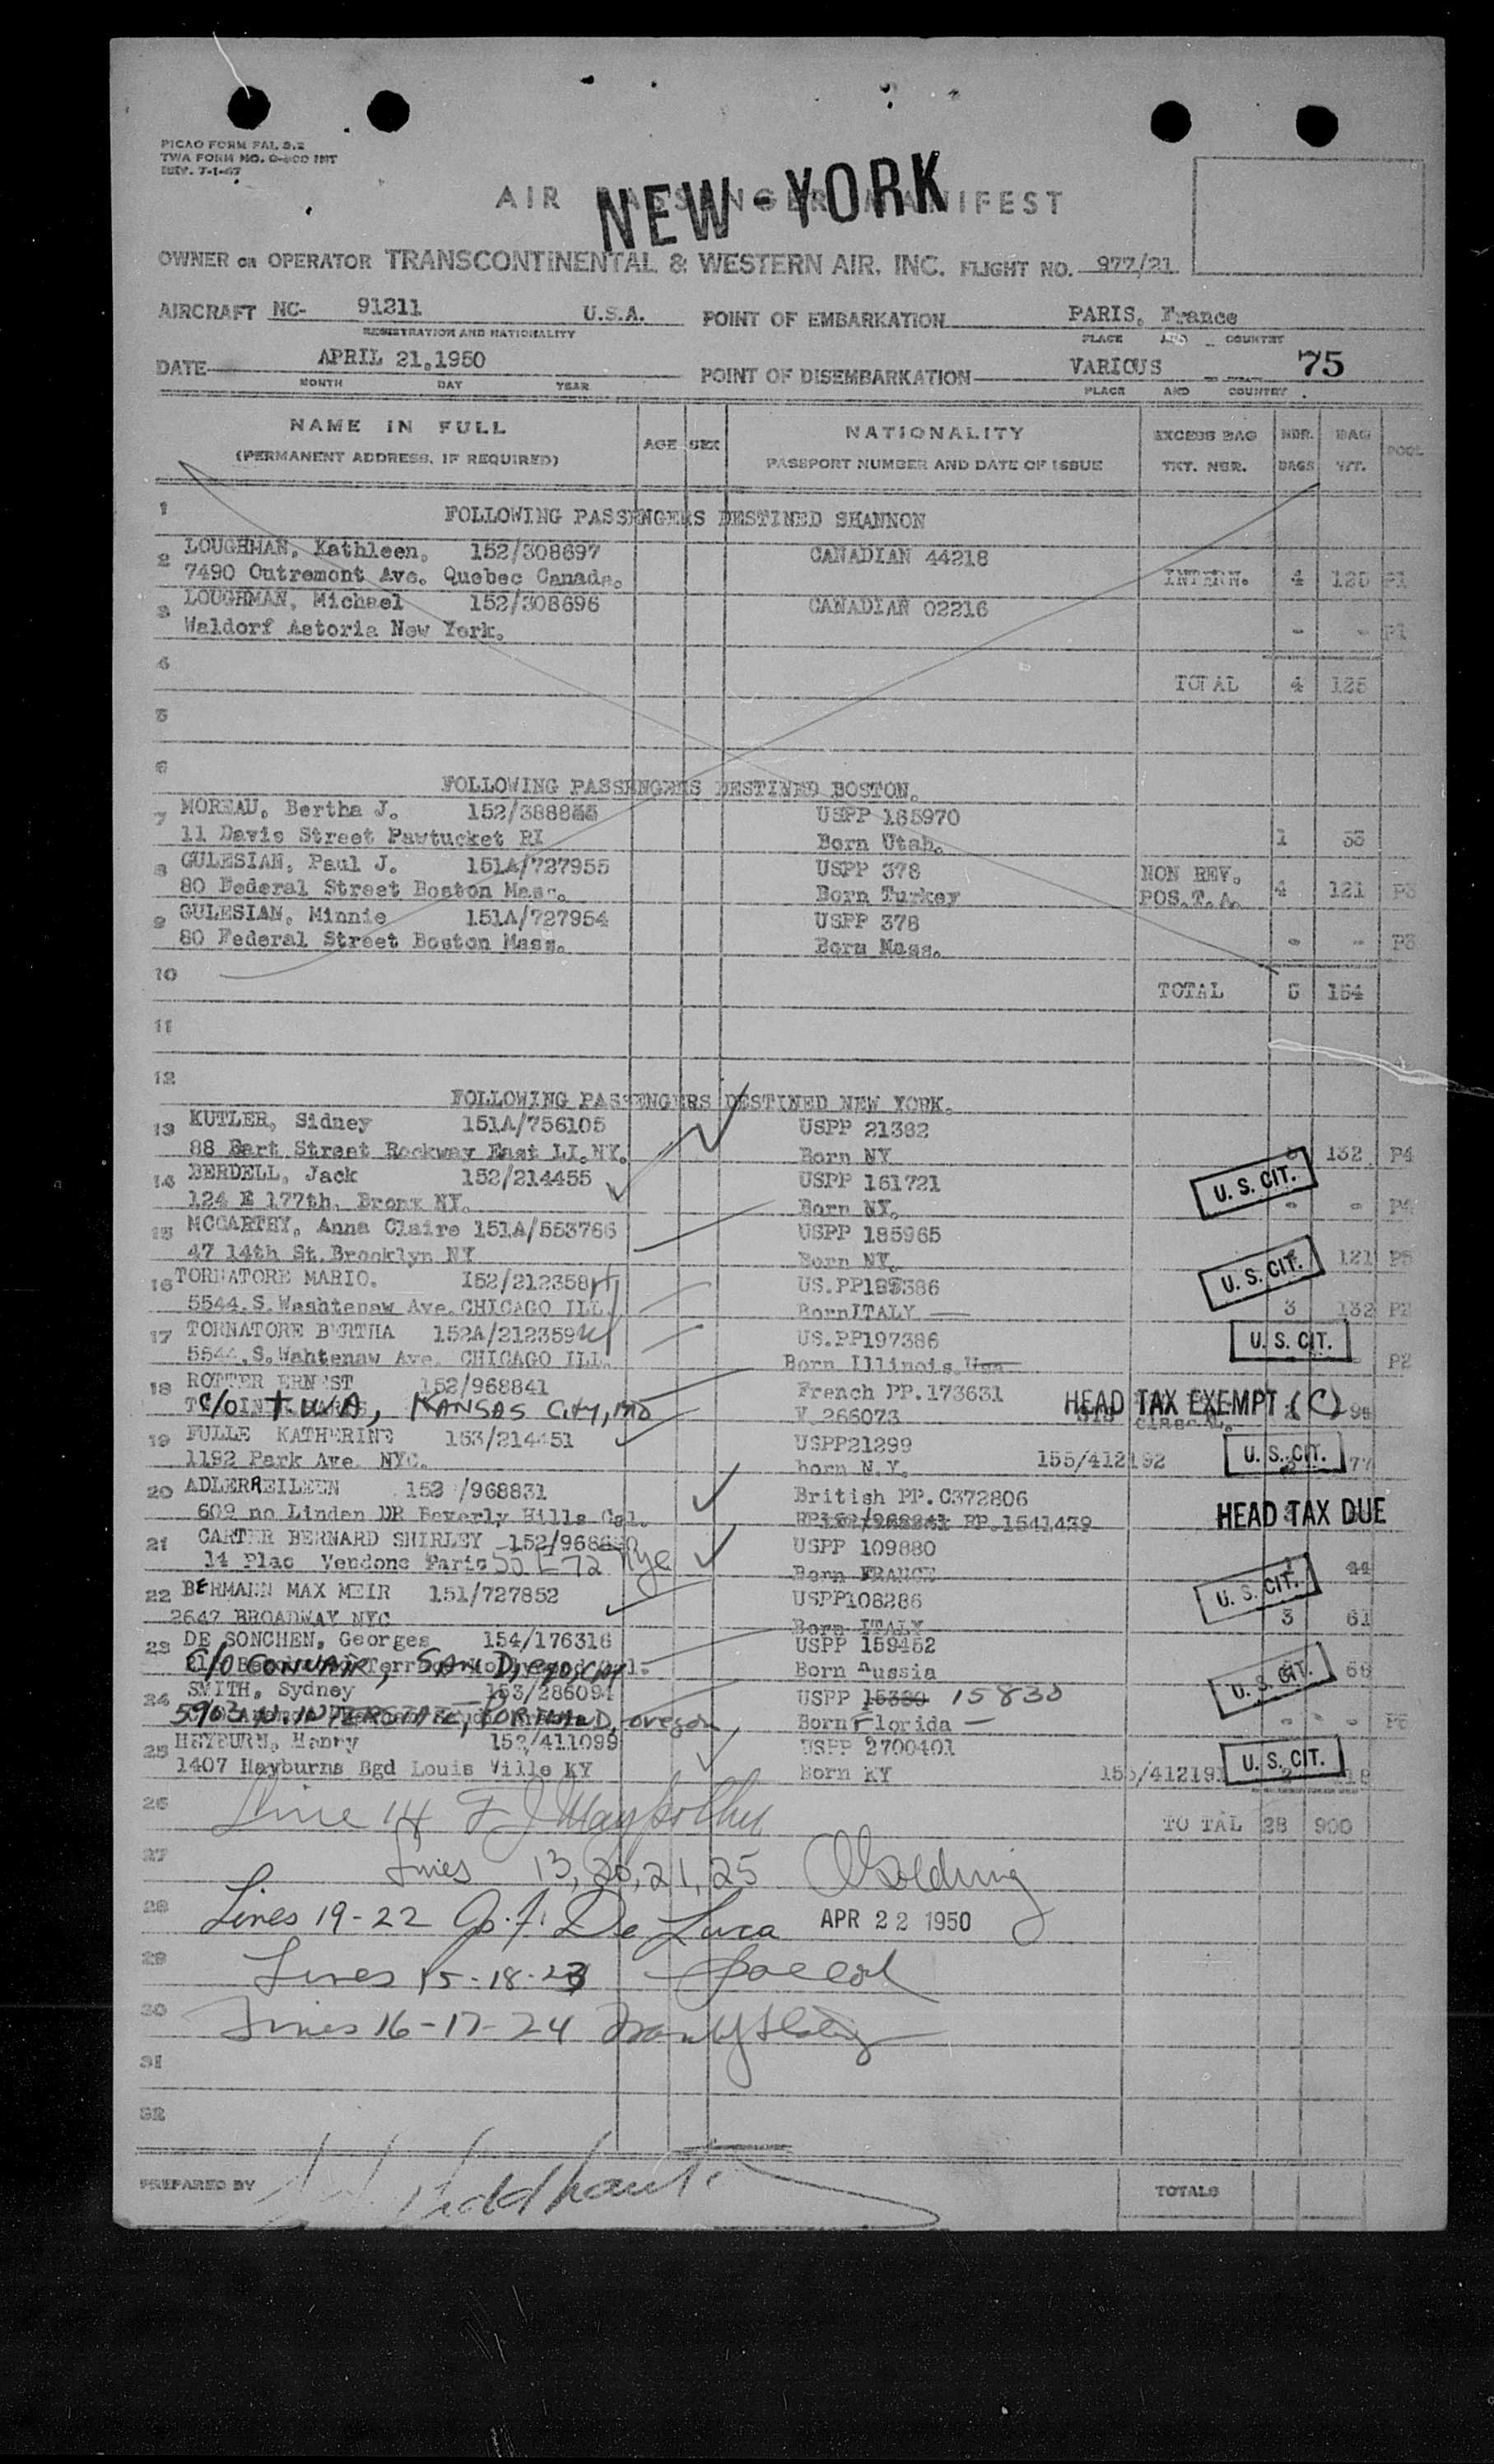 PICAO FORM FAL 3.2
TWA FORM NO. O-500 INT
REV. 7-1-47
AIR PASSENGER MANIFEST
NEW YORK
OWNER OR OPERATOR TRANSCONTINENTAL & WESTERN AIR, INC. FLIGHT NO. 977/21
AIRCRAFT NC- 91211 U.S.A. POINT OF EMBARKATION PARIS, France
REGISTRATION AND NATIONALITY PLACE AND COUNTRY
DATE APRIL 21,1950 POINT OF DISEMBARKATION VARIOUS 75
MONTH DAY YEAR PLACE AND COUNTRY
NAME IN FULL AGE SEX NATIONALITY EXCESS BAG NBR. BAG POOL
(PERMANENT ADDRESS, IF REQUIRED) PASSPORT NUMBER AND DATE OF ISSUE TKT. NBR. BAGS WT.
1 FOLLOWING PASSENGERS DESTINED SHANNON
2 LOUGHMAN, Kathleen, 152/308697 CANADIAN 44218
7490 Outremont Ave. Quebec Canada. INTERN. 4 125 P1
3 LOUGHMAN, Michael 152/308696 CANADIAN 02216
Waldorf Astoria New York. - - P1
4 TOTAL 4 125
5
6 FOLLOWING PASSENGERS DESTINED BOSTON.
7 MOREAU, Bertha J. USPP 165970
11 Davis Street Pawtucket RI Born Utah. 1 33
8 GULESIAN, Paul J. 151A/727955 USPP 378 NON REV.
80 Federal Street Boston Mass. Born Turkey POS.T.A. 4 121 P3
9 GULESIAN, Minnie 151A/727954 USPP 378
80 Federal Street Boston Mass. Born Mass. - - P3
10 TOTAL 5 154
11
12 FOLLOWING PASSENGERS DESTINED NEW YORK.
13 KUTLER, Sidney 151A/756105 USPP 21382
88 Bart Street Rockway East LI.NY. Born NY 132 P4
14 BERDELL, Jack 152/214455 USPP 161721 U. S. CIT.
124 E 177th. Bronx NY. Born NY. - - P4
15 MCCARTHY, Anna Claire 151A/553766 USPP 185965
47 14th St. Brooklyn NY Born NY. U. S. CIT. 121 P5
16 TORNATORE MARIO. 152/212358 US.PP197386
5544.S.Washtenaw Ave. CHICAGO ILL. Born ITALY 3 132 P2
17 TORNATORE BERTHA 152A/212359 US.PP197386 U. S. CIT.
5544.S.Wahtenaw Ave. CHICAGO ILL. Born Illinois Usa P2
18 ROTTER ERNEST 152/968841 French PP.173631 HEAD TAX EXEMPT (C)
c/o TWA, KANSAS CITY, MO V.266073
19 FULLE KATHERINE 153/214451 USPP21299
1192 Park Ave. NYC. born N.Y. 155/412192 U. S. CIT. 77
20 ADLER EILEEN 152/968831 British PP.C372806
609 no Linden DR Beverly Hills Cal. RP.1541439 HEAD TAX DUE
21 CARTER BERNARD SHIRLEY USPP 109880
14 Plac Vendone Paris 50 E 72 nyc Born FRANCE U. S. CIT. 44
22 BERMANN MAX MEIR 151/727852 USPP108286
2647 BROADWAY NYC Born ITALY 3 61
23 DE SONCHEN, Georges 154/176316 USPP 159452
C/O CONVAIR, SAN Diego, CAL. Born Russia U. S. CIT. 66
24 SMITH, Sydney 153/286094 USPP 15380 15830
5903 N. INTERSTATE, PORTLAND, oregon, Born Florida - -
25 HEYBURN, Henry 152/411099 USPP 2700401
1407 Hayburns Bgd Louis Ville KY Born KY 155/412191 U. S. CIT.
26 Line 14 TO TAL 28 900
27 Lines 13, 20, 21, 25 Golding
28 Lines 19-22 De Luca APR 22 1950
29 Lines 15-18-23
30 Lines 16-17-24
31
32
PREPARED BY TOTALS